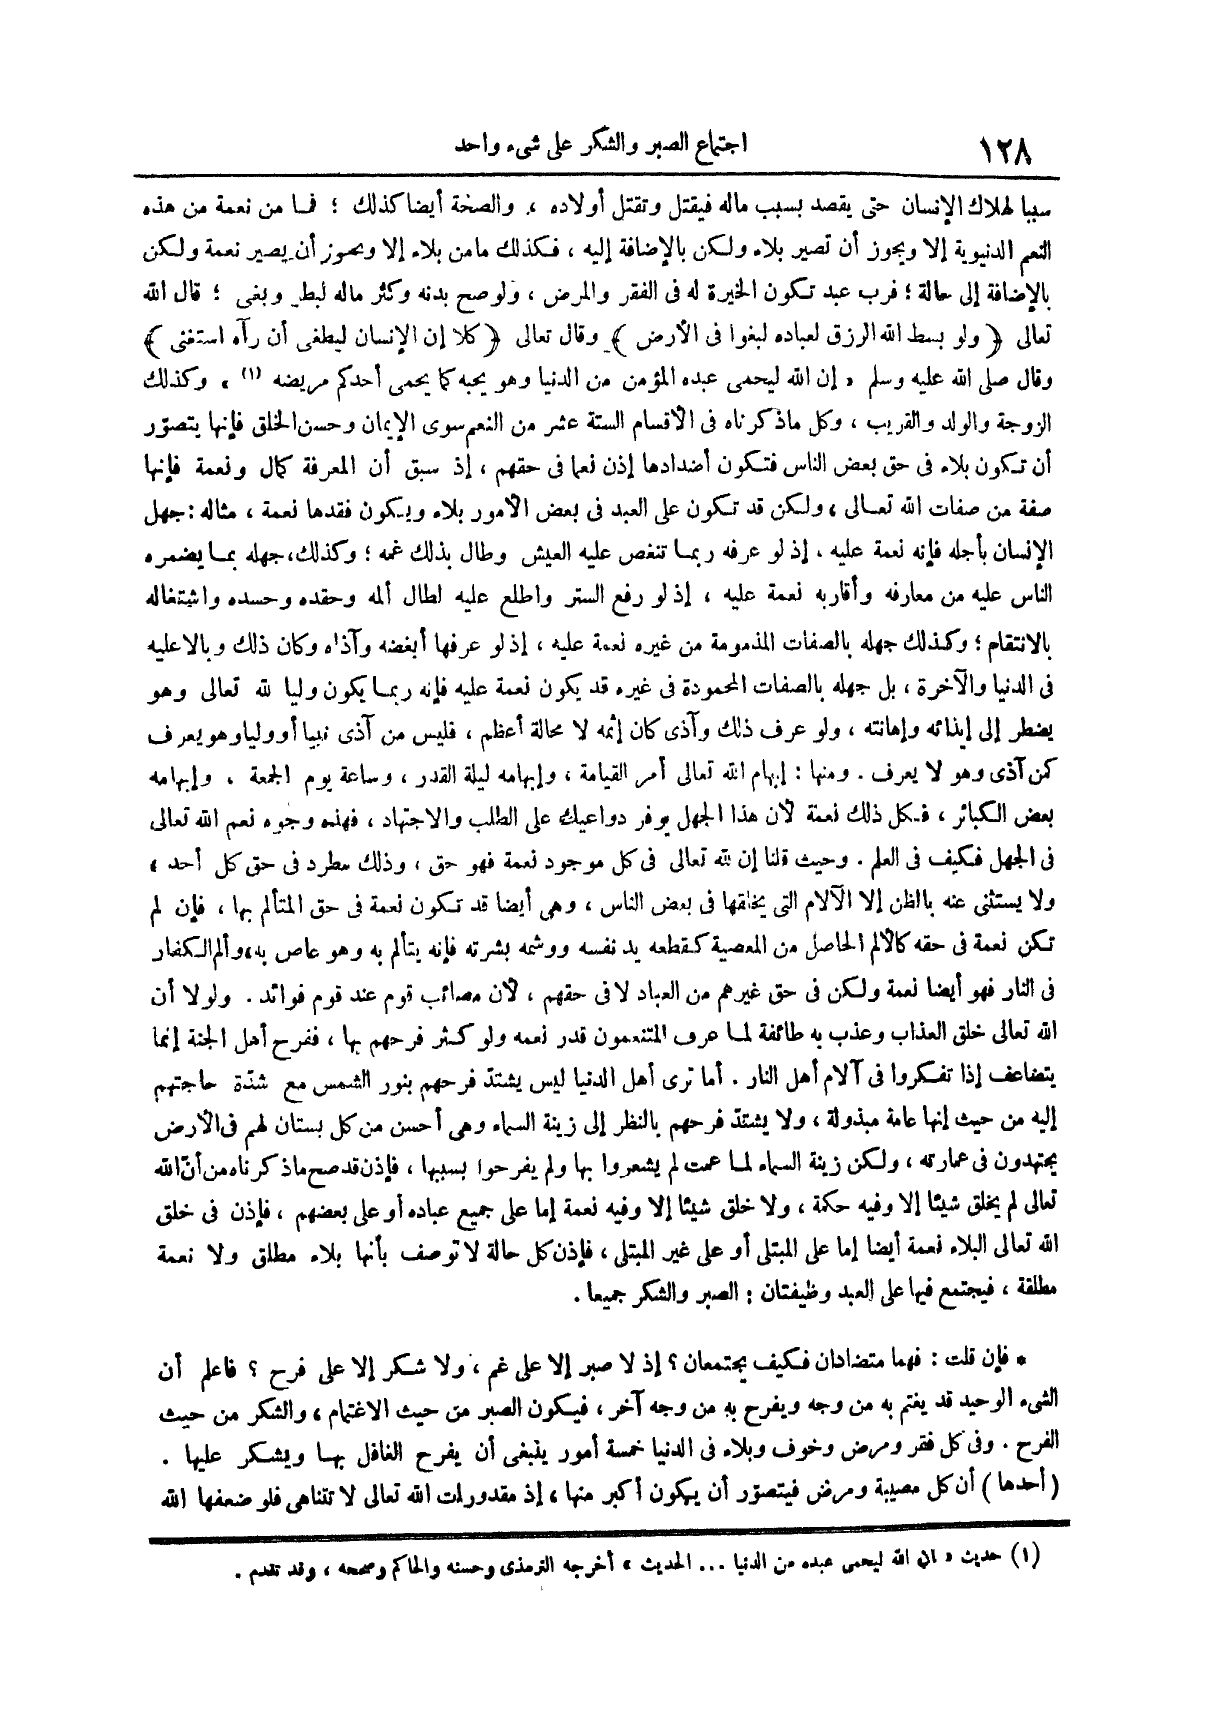 ١٢٨
اجتماع الصبر والشكر على شىء واحد
سببا لهلاك الإنسان حتى يقصد بسبب ماله فيقتل وتقتل أولاده ، والصحة أيضا كذلك ؛ فما من نعمة من هذه
النعم الدنيوية إلا ويجوز أن تصير بلاء ولكن بالإضافة إليه ، فكذلك مامن بلاء إلا ويجوز أن يصير نعمة ولكن
بالإضافة إلى حالة ؛ فرب عبد تكون الخيرة له فى الفقر والمرض ، ولو صح بدنه وكثر ماله لبطر وبغى ؛ قال الله
تعالى ﴿ ولو بسط الله الرزق لعباده لبغوا فى الأرض ﴾ وقال تعالى ﴿ كلا إن الإنسان ليطغى أن رآه استغنى ﴾
وقال صلى الله عليه وسلم « إن الله ليحمى عبده المؤمن من الدنيا وهو يحبه كما يحمى أحدكم مريضه (١) » وكذلك
الزوجة والولد والقريب ، وكل ماذكرناه فى الأقسام الستة عشر من النعم سوى الإيمان وحسن الخلق فإنها يتصوّر
أن تكون بلاء فى حق بعض الناس فتكون أضدادها إذن نعما فى حقهم ، إذ سبق أن المعرفة كمال ونعمة فإنها
صفة من صفات الله تعالى ، ولكن قد تكون على العبد فى بعض الأمور بلاء ويكون فقدها نعمة ، مثاله : جهل
الإنسان بأجله فإنه نعمة عليه ، إذ لو عرفه ربما تنغص عليه العيش وطال بذلك غمه ؛ وكذلك ، جهله بما يضمره
الناس عليه من معارفه وأقاربه نعمة عليه ، إذ لو رفع الستر واطلع عليه لطال ألمه وحقده وحسده واشتغاله
بالانتقام ؛ وكذلك جهله بالصفات المذمومة من غيره نعمة عليه ، إذ لو عرفها أبغضه وآذاه وكان ذلك وبالا عليه
فى الدنيا والآخرة ، بل جهله بالصفات المحمودة فى غيره قد يكون نعمة عليه فإنه ربما يكون وليا لله تعالى وهو
يضطر إلى إيذائه وإهانته ، ولو عرف ذلك وآذى كان إثمه لا محالة أعظم ، فليس من آذى نبيا أو وليا وهو يعرف
كمن آذى وهو لا يعرف . ومنها : إبهام الله تعالى أمر القيامة ، وإبهامه ليلة القدر ، وساعة يوم الجمعة ، وإبهامه
بعض الكبائر ، فكل ذلك نعمة لأن هذا الجهل يوفر دواعيك على الطلب والاجتهاد ، فهذه وجوه نعم الله تعالى
فى الجهل فكيف فى العلم . وحيث قلنا إن لله تعالى فى كل موجود نعمة فهو حق ، وذلك مطرد فى حق كل أحد ،
ولا يستثنى عنه بالظن إلا الآلام التى يخلقها فى بعض الناس ، وهى أيضا قد تكون نعمة فى حق المتألم بها ، فإن لم
تكن نعمة فى حقه كالألم الحاصل من المعصية كقطعه يد نفسه ووشمه بشرته فإنه يتألم به وهو عاص به ، وألم الكفار
فى النار فهو أيضا نعمة ولكن فى حق غيرهم من العباد لا فى حقهم ، لأن مصائب قوم عند قوم فوائد . ولولا أن
الله تعالى خلق العذاب وعذب به طائفة لما عرف المتنعمون قدر نعمه ولو كثر فرحهم بها ، ففرح أهل الجنة إنما
يتضاعف إذا تفكروا فى آلام أهل النار . أما ترى أهل الدنيا ليس يشتدّ فرحهم بنور الشمس مع شدّة حاجتهم
إليه من حيث إنها عامة مبذولة ، ولا يشتدّ فرحهم بالنظر إلى زينة السماء وهى أحسن من كل بستان لهم فى الأرض
يجتهدون فى عمارته ، ولكن زينة السماء لما عمت لم يشعروا بها ولم يفرحوا بسببها ، فإذن قد صح ماذكرناه من أنّ الله
تعالى لم يخلق شيئا إلا وفيه حكمة ، ولا خلق شيئا إلا وفيه نعمة إما على جميع عباده أو على بعضهم ، فإذن فى خلق
الله تعالى البلاء نعمة أيضا إما على المبتلى أو على غير المبتلى ، فإذن كل حالة لا توصف بأنها بلاء مطلق ولا نعمة
مطلقة ، فيجتمع فيها على العبد وظيفتان : الصبر والشكر جميعا .
* فإن قلت : فهما متضادان فكيف يجتمعان ؟ إذ لا صبر إلا على غم ، ولا شكر إلا على فرح ؟ فاعلم أن
الشىء الوحيد قد يغتم به من وجه ويفرح به من وجه آخر ، فيكون الصبر من حيث الاغتمام ، والشكر من حيث
الفرح . وفى كل فقر ومرض وخوف وبلاء فى الدنيا خمسة أمور ينبغى أن يفرح الغافل بها ويشكر عليها .
( أحدها ) أن كل مصيبة ومرض فيتصوّر أن يكون أكبر منها ، إذ مقدورات الله تعالى لا تتناهى فلو ضعفها الله
(١) حديث « ان الله ليحمى عبده من الدنيا ... الحديث » أخرجه الترمذى وحسنه والحاكم وصححه ، وقد تقدم .